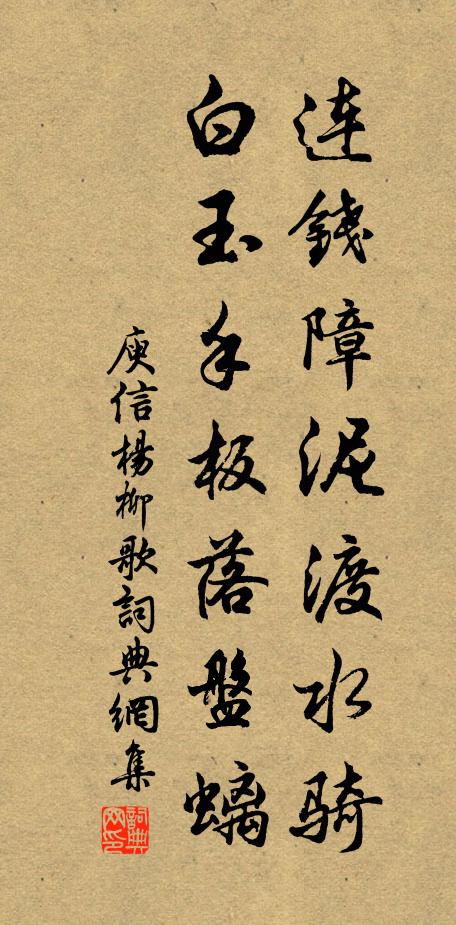 連錢障泥渡水騎
白玉手板落盤螭
庾信楊柳歌詞典網集
詞典網印